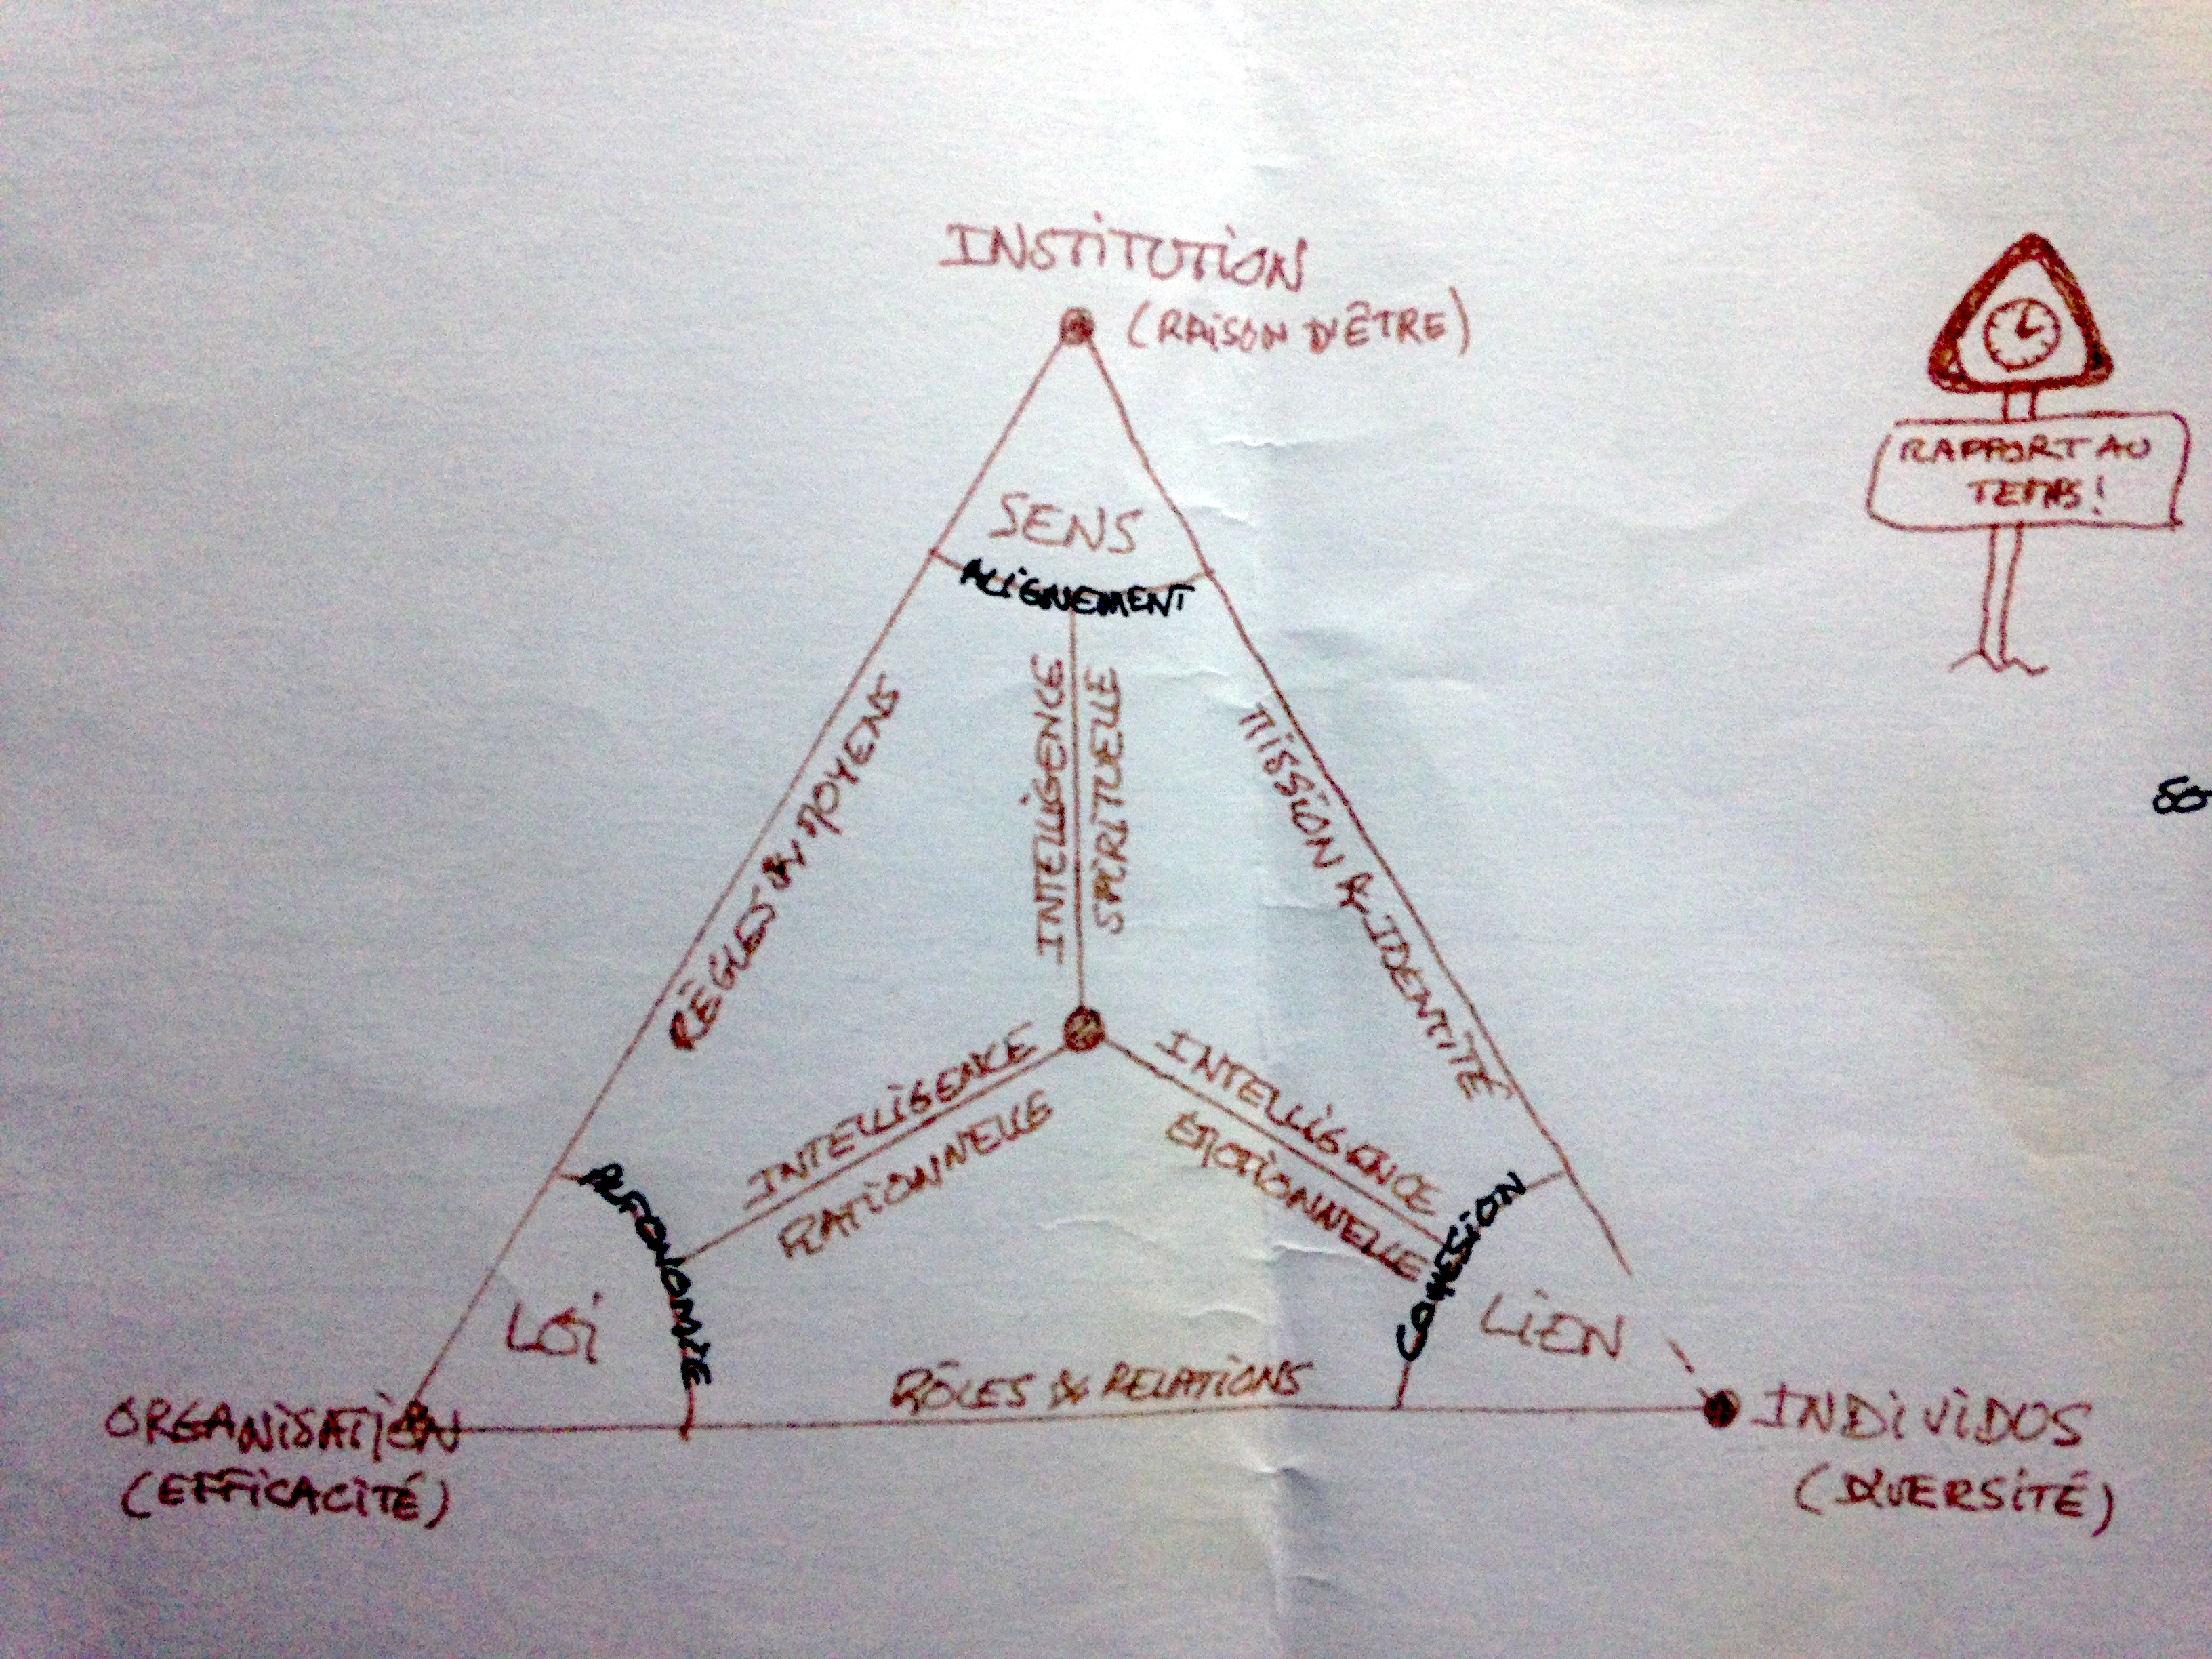 INSTITUTION
(RAISON D'ÊTRE)
RAPPORT AU
TEMPS!
SENS
ALIGNEMENT
RÈGLES & MOYENS
INTELLIGENCE
SPIRITUELLE
MISSION & IDENTITÉ
INTELLIGENCE
RATIONNELLE
INTELLIGENCE
ÉMOTIONNELLE
AUTONOMIE
COHÉSION
LOI
LIEN
RÔLES & RELATIONS
ORGANISATION
(EFFICACITÉ)
INDIVIDUS
(DIVERSITÉ)